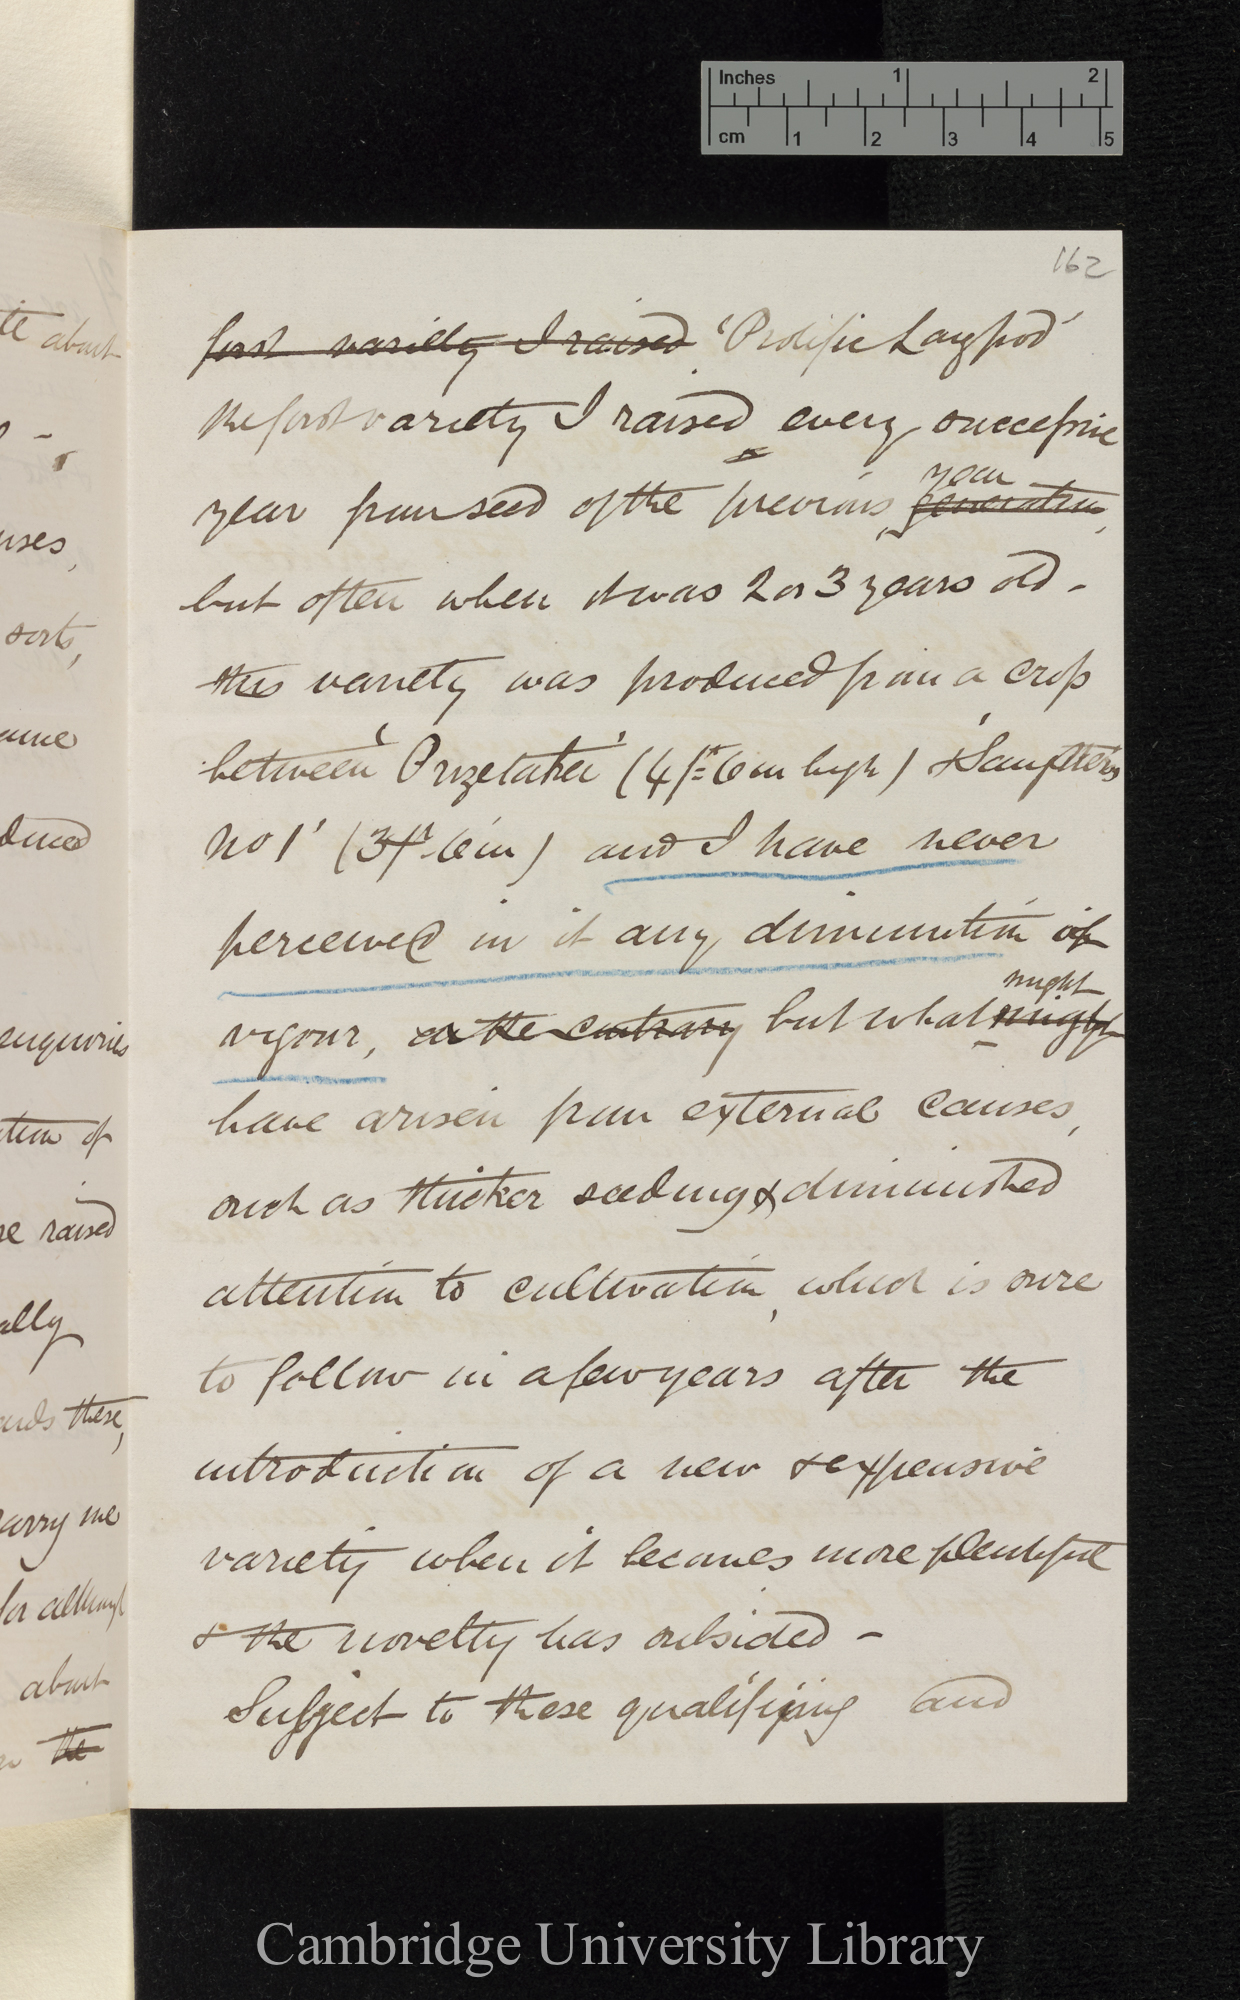 Inches 1 2
cm 1 2 3 4 5
162
first variety I raised 'Prolific Longpod'
the first variety I raised every successive
year
year from seed of the previous generation,
but often when it was 2 or 3 years old -
this variety was produced from a cross
between 'Prizetaker' (4 ft 6 in high) & 'Laxton's
No 1' (3 ft 6 in) and I have never
perceived in it any diminution of
might
vigour, on the contrary but what might
have arisen from external causes,
such as thicker seeding & diminished
attention to cultivation, which is sure
to follow in a few years after the
introduction of a new & expensive
variety when it becomes more plentiful
& the novelty has subsided -
Subject to these qualifying and
te about
uses,
sorts,
duced
enquiries
tion of
re raised
ally
ards these,
carry me
for although
about
the
Cambridge University Library